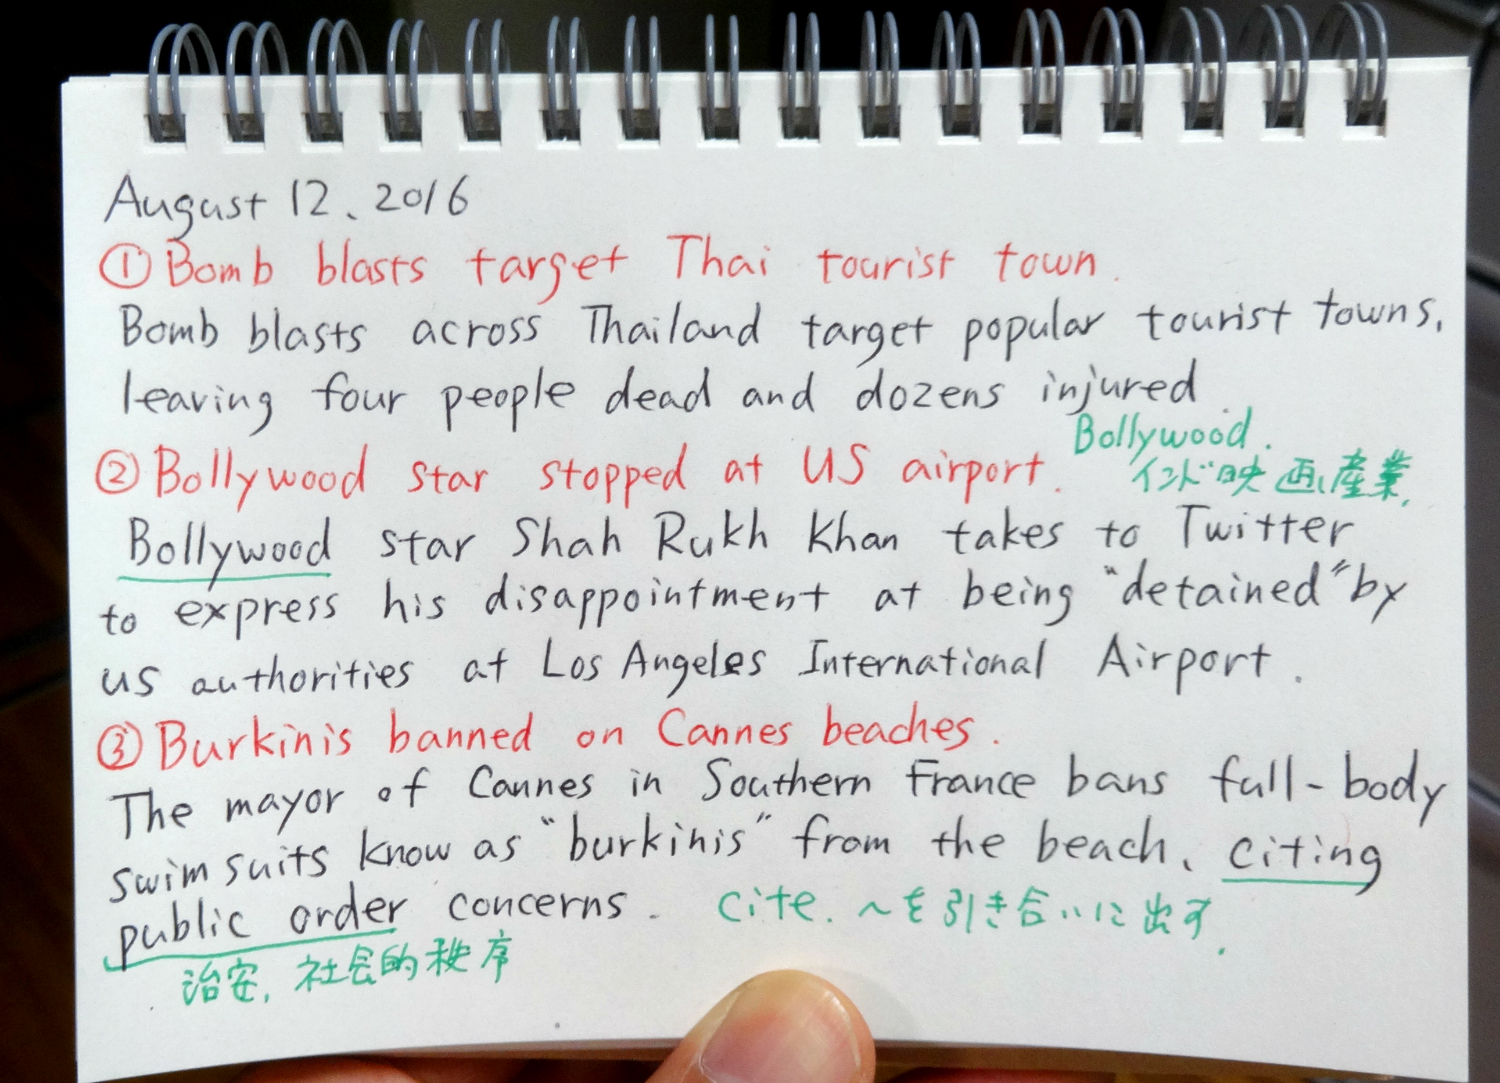 August 12、2016
① Bomb blasts target Thai tourist town.
Bomb blasts across Thailand target popular tourist towns,
leaving four people dead and dozens injured.
Bollywood.
② Bollywood star stopped at US airport.
インド映画産業.
Bollywood star Shah Rukh Khan takes to Twitter
to express his disappointment at being "detained" by
US authorities at Los Angeles International Airport.
③ Burkinis banned on Cannes beaches.
The mayor of Cannes in Southern France bans full-body
swimsuits know as "burkinis" from the beach、citing
public order concerns.
cite. 〜を引き合いに出す.
治安, 社会的秩序